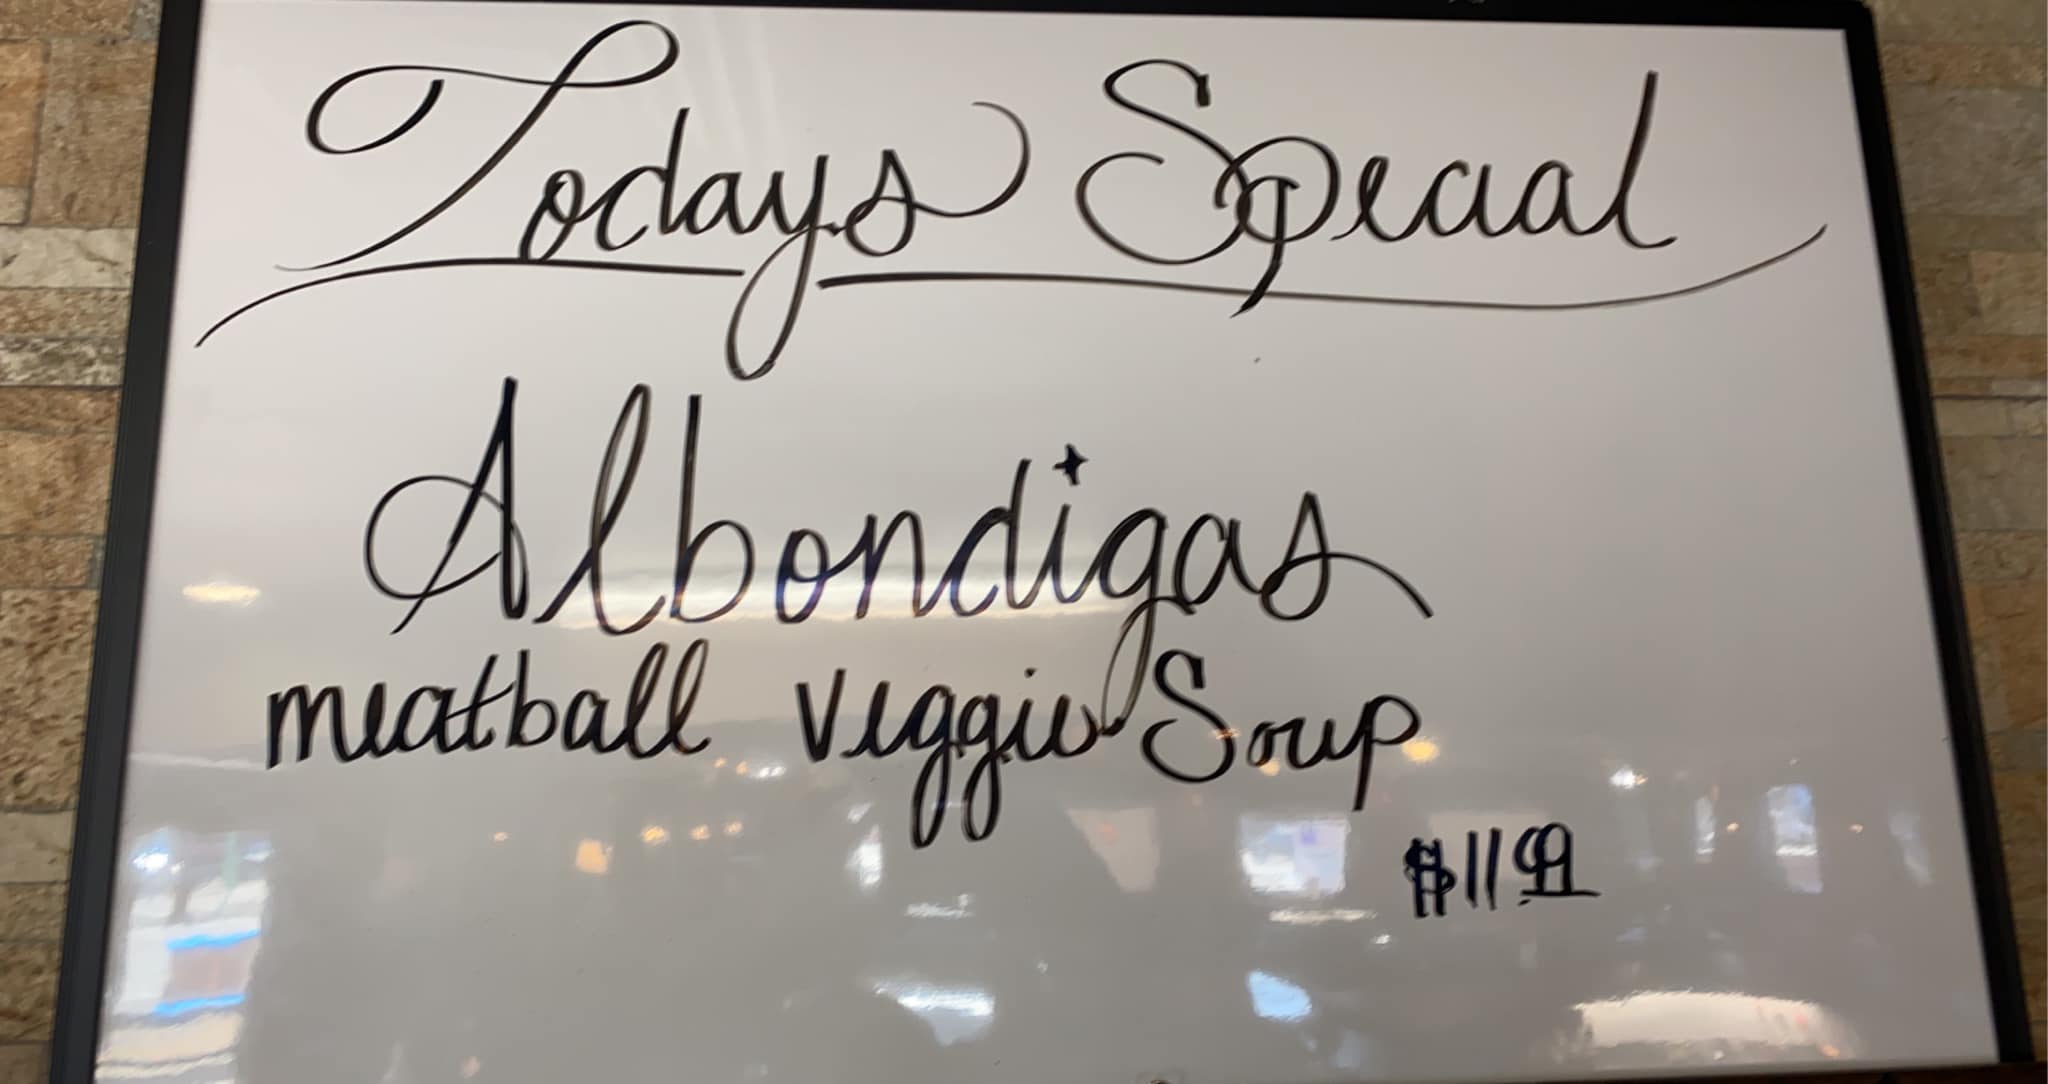 Todays Special
Albondigas
meatball veggie Soup
$11 99